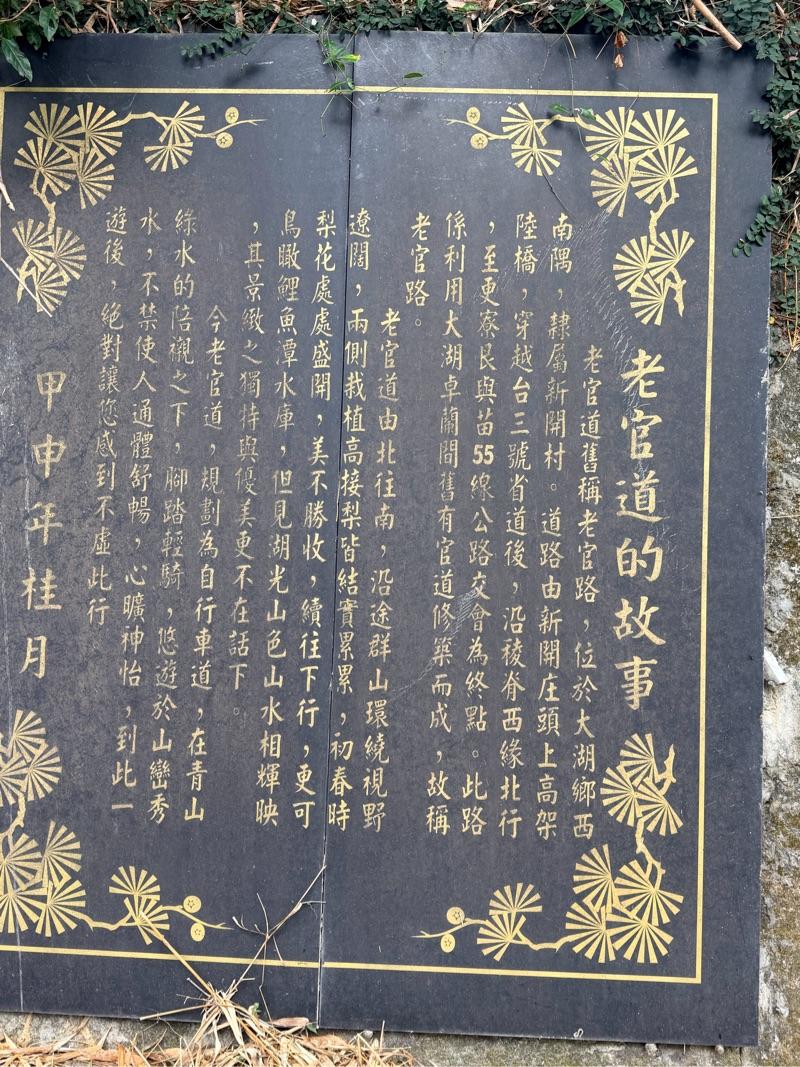 老官道的故事
老官道舊稱老官路，位於大湖鄉西
南隅，隸屬新開村。道路由新開庄頭上高架
陸橋，穿越台三號省道後，沿稜脊西緣北行
，至更寮良與苗55線公路交會為終點。此路
係利用大湖卓蘭間舊有官道修築而成，故稱
老官路。
老官道由北往南，沿途群山環繞視野
遼闊，兩側栽植高接梨皆結實累累，初春時
梨花處處盛開，美不勝收，續往下行，更可
鳥瞰鯉魚潭水庫，但見湖光山色山水相輝映
，其景緻之獨特與優美更不在話下。
今老官道，規劃為自行車道，在青山
綠水的陪襯之下，腳踏輕騎，悠遊於山巒秀
水，不禁使人通體舒暢，心曠神怡，到此一
遊後，絕對讓您感到不虛此行
甲申年桂月